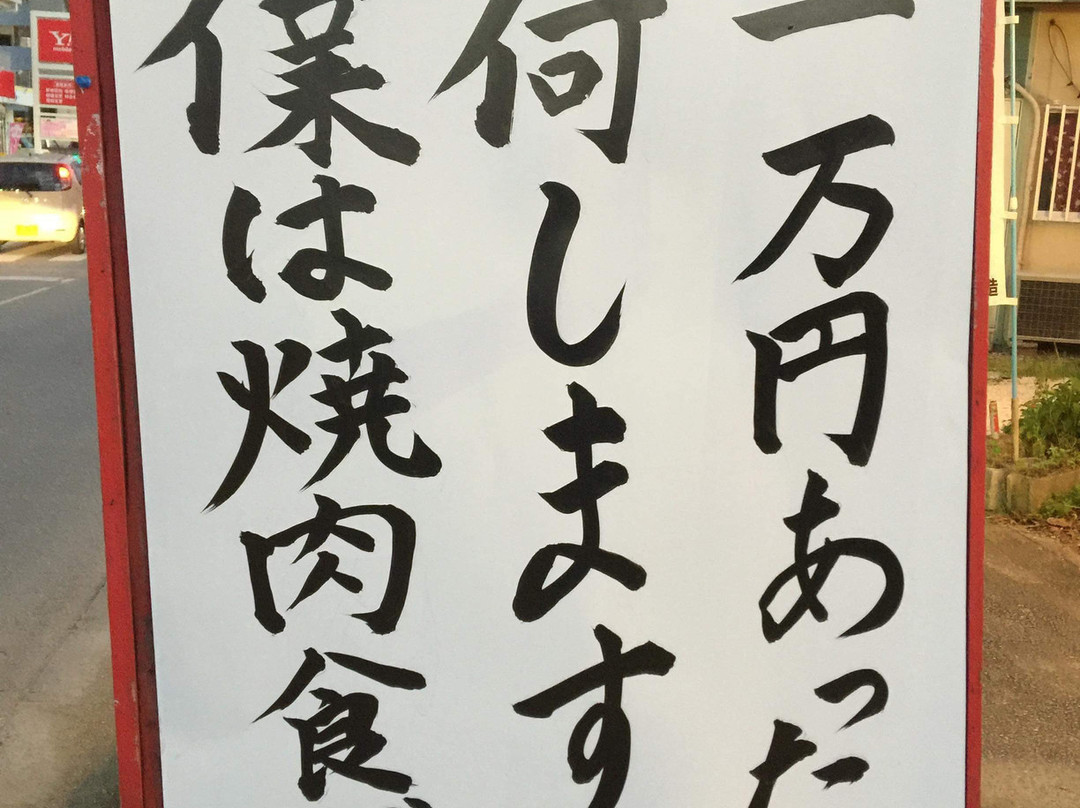 一万円あった
何します
僕は焼肉食
Y!
mobile